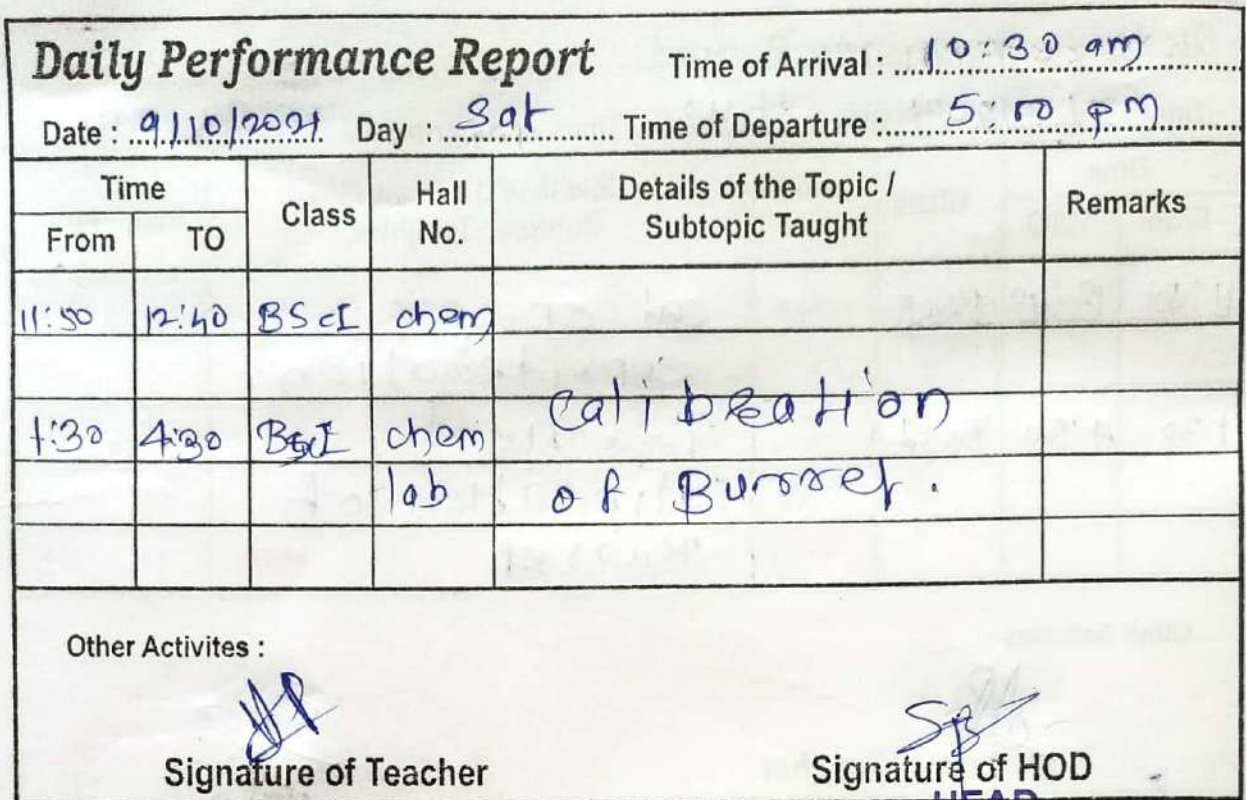 Daily Performance Report Time of Arrival : 10:30 am
Date : 9/10/2021 Day : Sat Time of Departure : 5:00 pm
Time Class Hall No. Details of the Topic / Subtopic Taught Remarks
From TO
11:50 12:40 BScI chem
1:30 4:30 BScI chem calibration
lab of Burret.
Other Activites :
Signature of Teacher Signature of HOD
HEAD